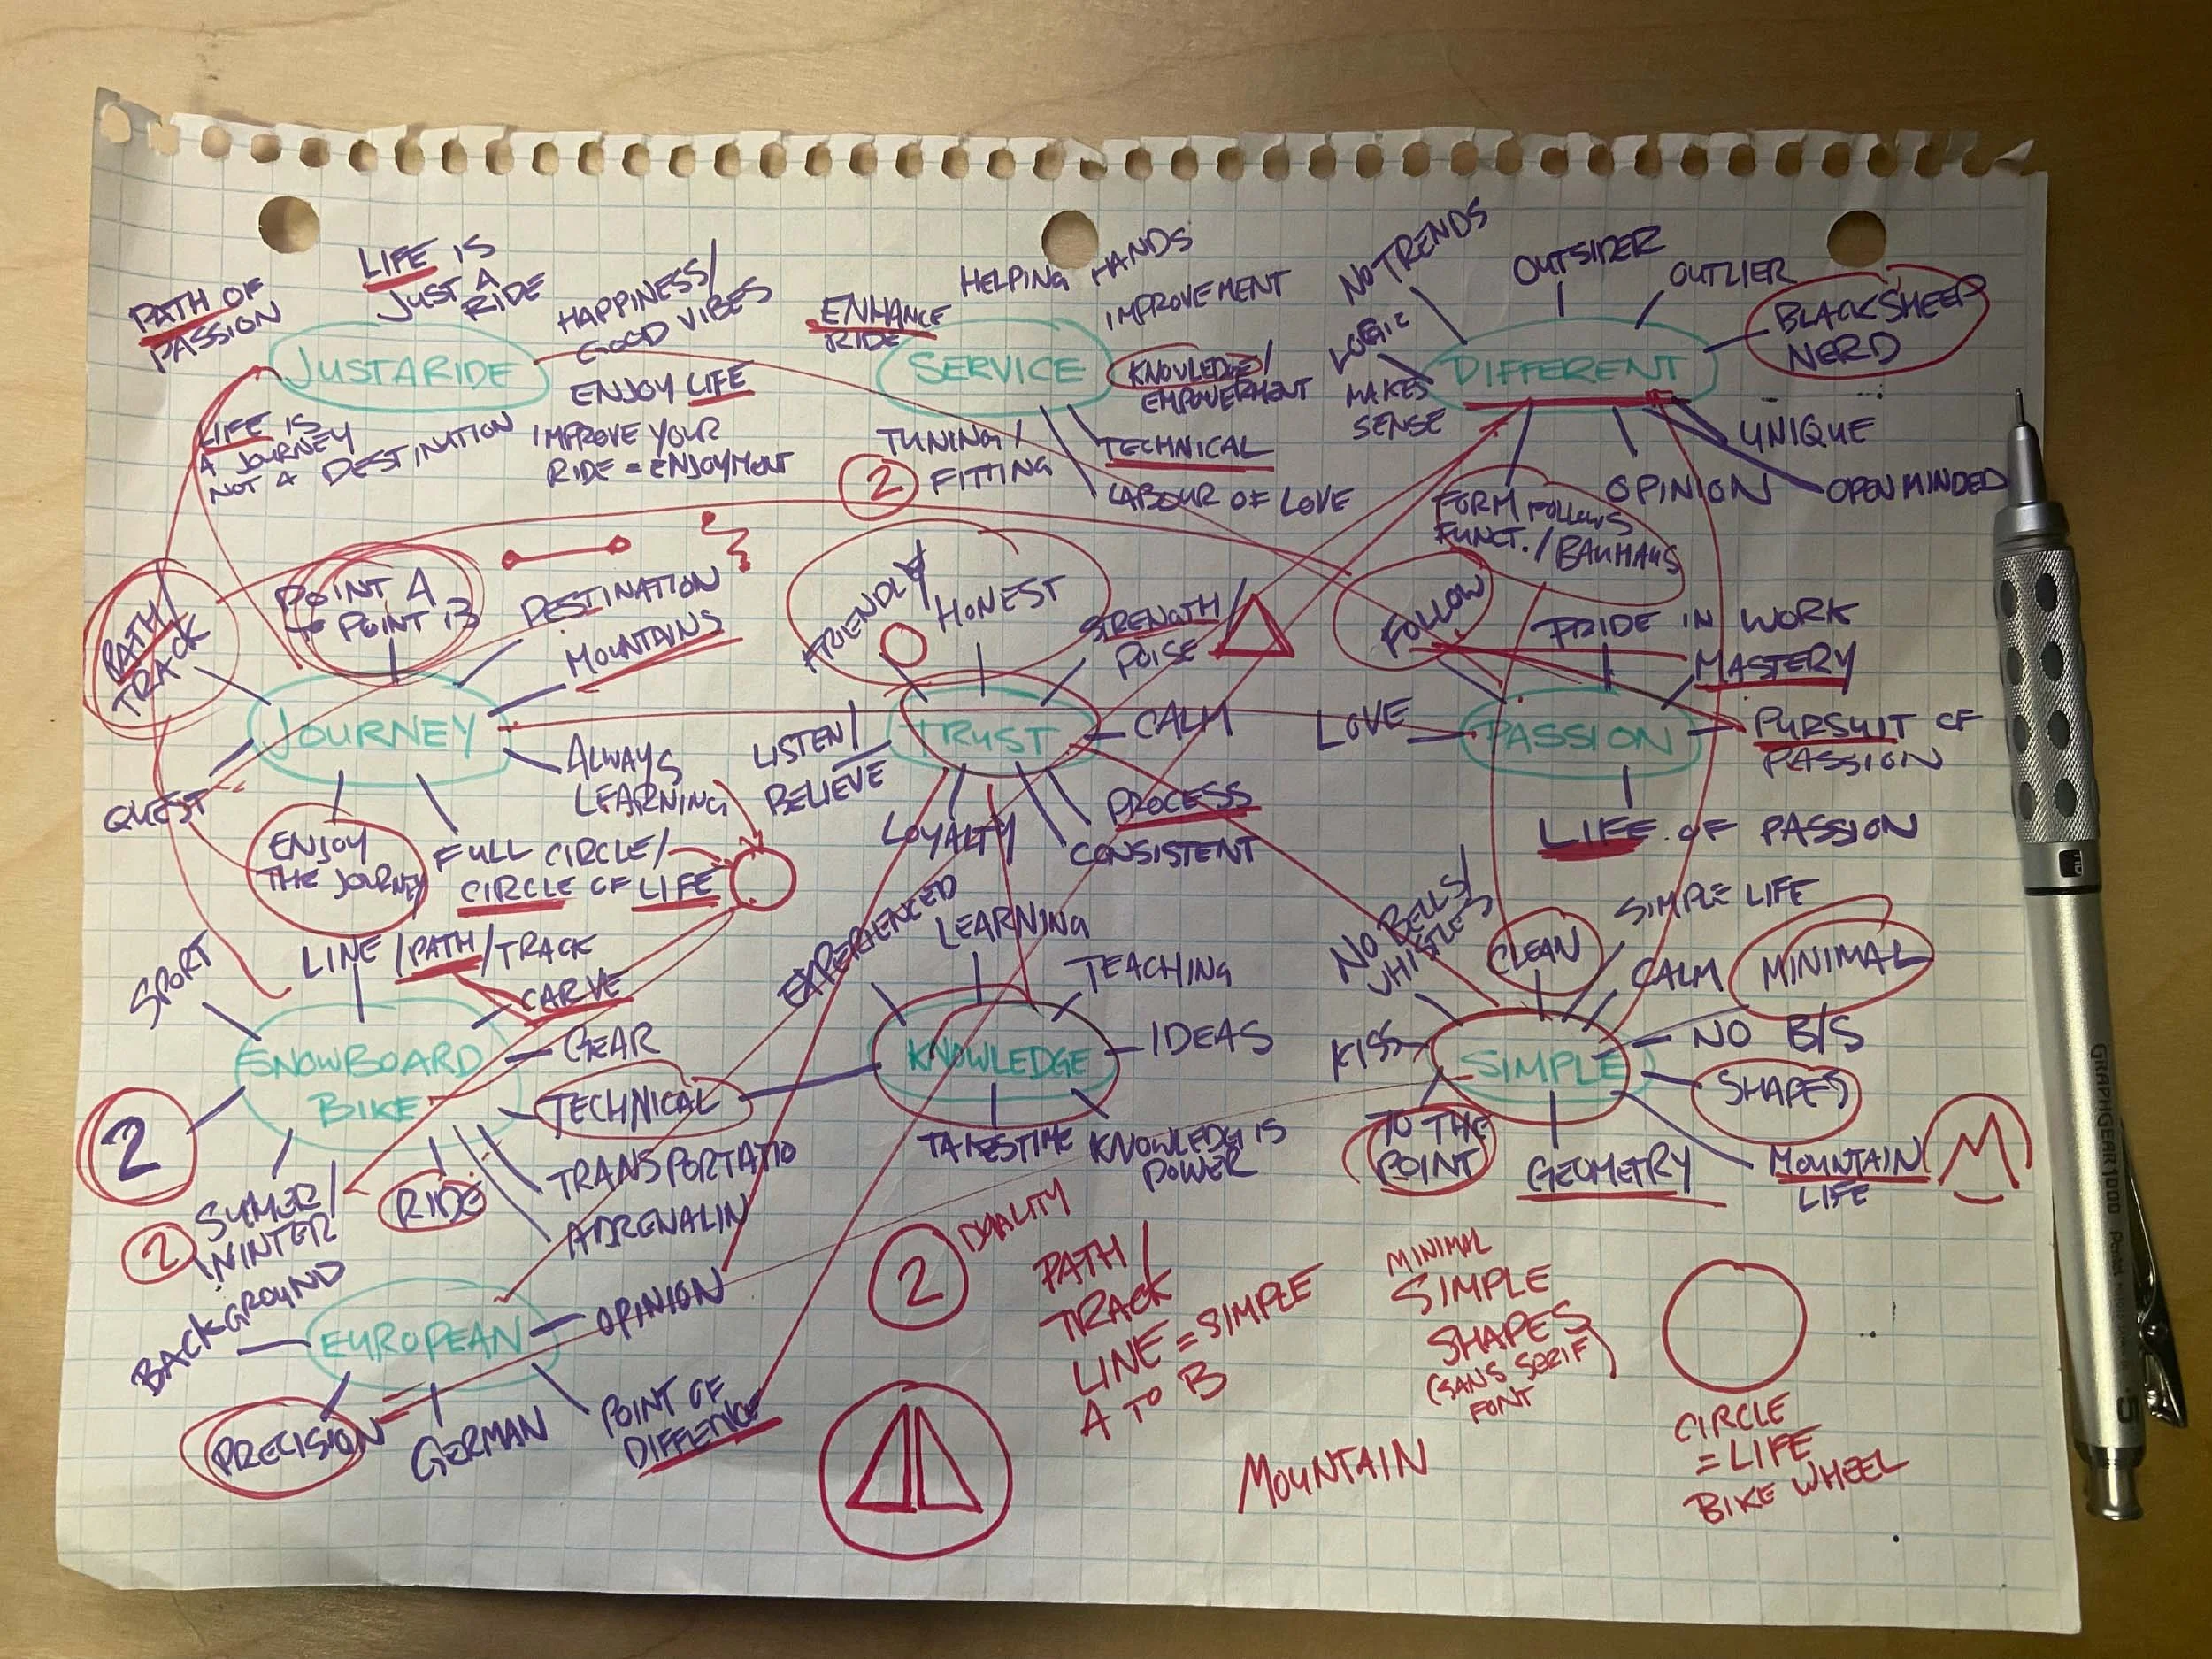 PATH OF
PASSION
LIFE IS
JUST A
RIDE
HAPPINESS/
GOOD VIBES
ENJOY LIFE
IMPROVE YOUR
RIDE = ENJOYMENT
LIFE IS
A JOURNEY
NOT A DESTINATION
JUSTARIDE
ENHANCE
RIDE
HELPING HANDS
IMPROVEMENT
KNOWLEDGE/
EMPOWERMENT
SERVICE
TUNING/
FITTING
2
TECHNICAL
LABOUR OF LOVE
NO TRENDS
OUTSIDER
OUTLIER
BLACK SHEEP
NERD
LOGIC
MAKES
SENSE
DIFFERENT
UNIQUE
OPINION
OPEN MINDED
FORM FOLLOWS
FUNCT./BAUHAUS
PATH/
TRACK
POINT A
TO POINT B
DESTINATION
MOUNTAINS
JOURNEY
QUEST
ENJOY
THE JOURNEY
ALWAYS
LEARNING
FULL CIRCLE/
CIRCLE OF LIFE
FRIENDLY
HONEST
STRENGTH/
POISE
TRUST
CALM
LISTEN/
BELIEVE
LOYALTY
PROCESS
CONSISTENT
FOLLOW
PRIDE IN WORK
MASTERY
LOVE
PASSION
PURSUIT OF
PASSION
LIFE OF PASSION
SPORT
LINE/PATH/TRACK
CARVE
GEAR
SNOWBOARD
BIKE
TECHNICAL
2
SUMER/
WINTER
2
RIDE
TRANSPORTATIO
ADRENALIN
EXPERIENCED
LEARNING
TEACHING
IDEAS
KNOWLEDGE
TAKES TIME
KNOWLEDGE IS
POWER
NO BELLS/
WHISTLES
CLEAN
SIMPLE LIFE
CALM
MINIMAL
NO B/S
KISS
SIMPLE
SHAPES
TO THE
POINT
GEOMETRY
MOUNTAIN
LIFE
M
BACKGROUND
EUROPEAN
OPINION
PRECISION
GERMAN
POINT OF
DIFFENCE
2
DUALITY
PATH/
TRACK
LINE = SIMPLE
A TO B
MINIMAL
SIMPLE
SHAPES
(SANS SERIF
FONT
MOUNTAIN
CIRCLE
= LIFE
BIKE WHEEL
GRAPHGEAR 1000
.5